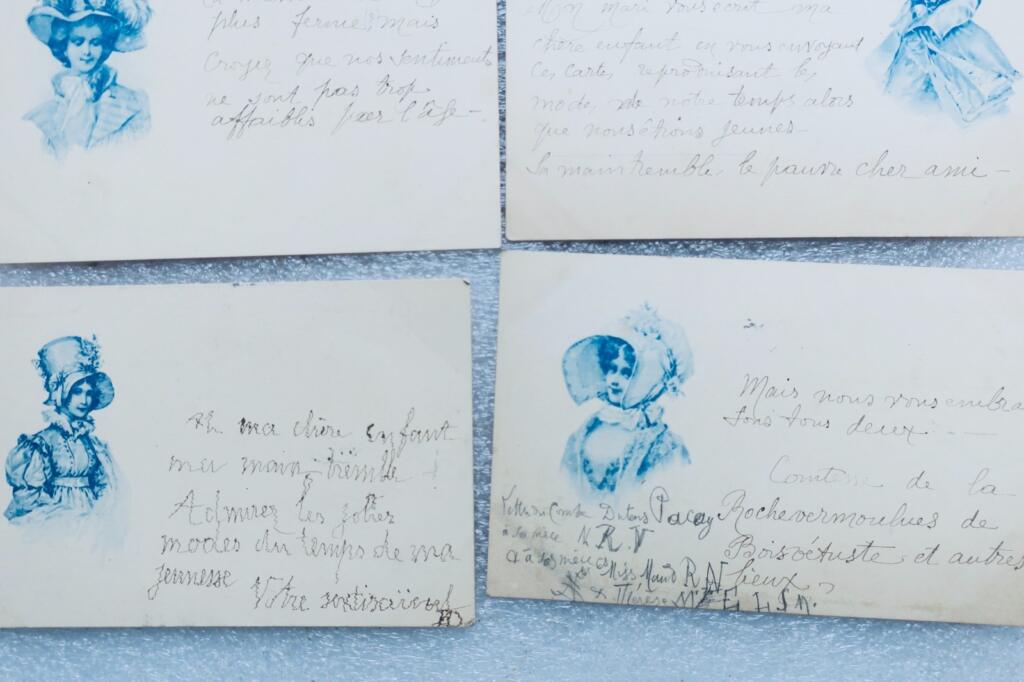 plus ferme, mais
croyez que nos sentiments
ne sont pas trop
affaiblis par l'âge -
Mon mari vous écrit ma
chère enfant en vous envoyant
ces cartes reproduisant les
modes de notre temps alors
que nous étions jeunes -
Sa main tremble, le pauvre cher ami -
Ah ma chère enfant
ma main tremble !
Admirez les jolies
modes du temps de ma
jeunesse
Votre
Mais nous vous embra
sons tous deux -
Comtesse de la
Rochevermoulues de
Boisvétuste et autres
lieux
Pacay
N R.V
à sa mère
Miss Maud R N